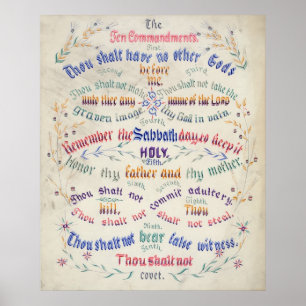 The
Ten Commandments.
First.
Thou shalt have no other Gods
before
me.
Second Third
Thou shalt not make Thou shalt not take the
unto thee any name of the LORD
graven image thy God in vain.
Fourth.
Remember the Sabbath day, to keep it
HOLY.
Fifth.
Honor thy father and thy mother.
Sixth. Seventh.
Thou shalt not commit adultery.
kill. Thou
Thou shalt not shalt not steal.
Ninth.
Thou shalt not bear false witness.
Tenth.
Thou shalt not
covet.